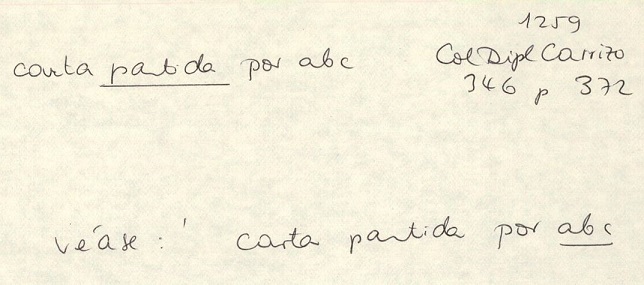 1259
carta partida por abc Col Dipl Carrizo
346 p 372
véase : ' carta partida por abc